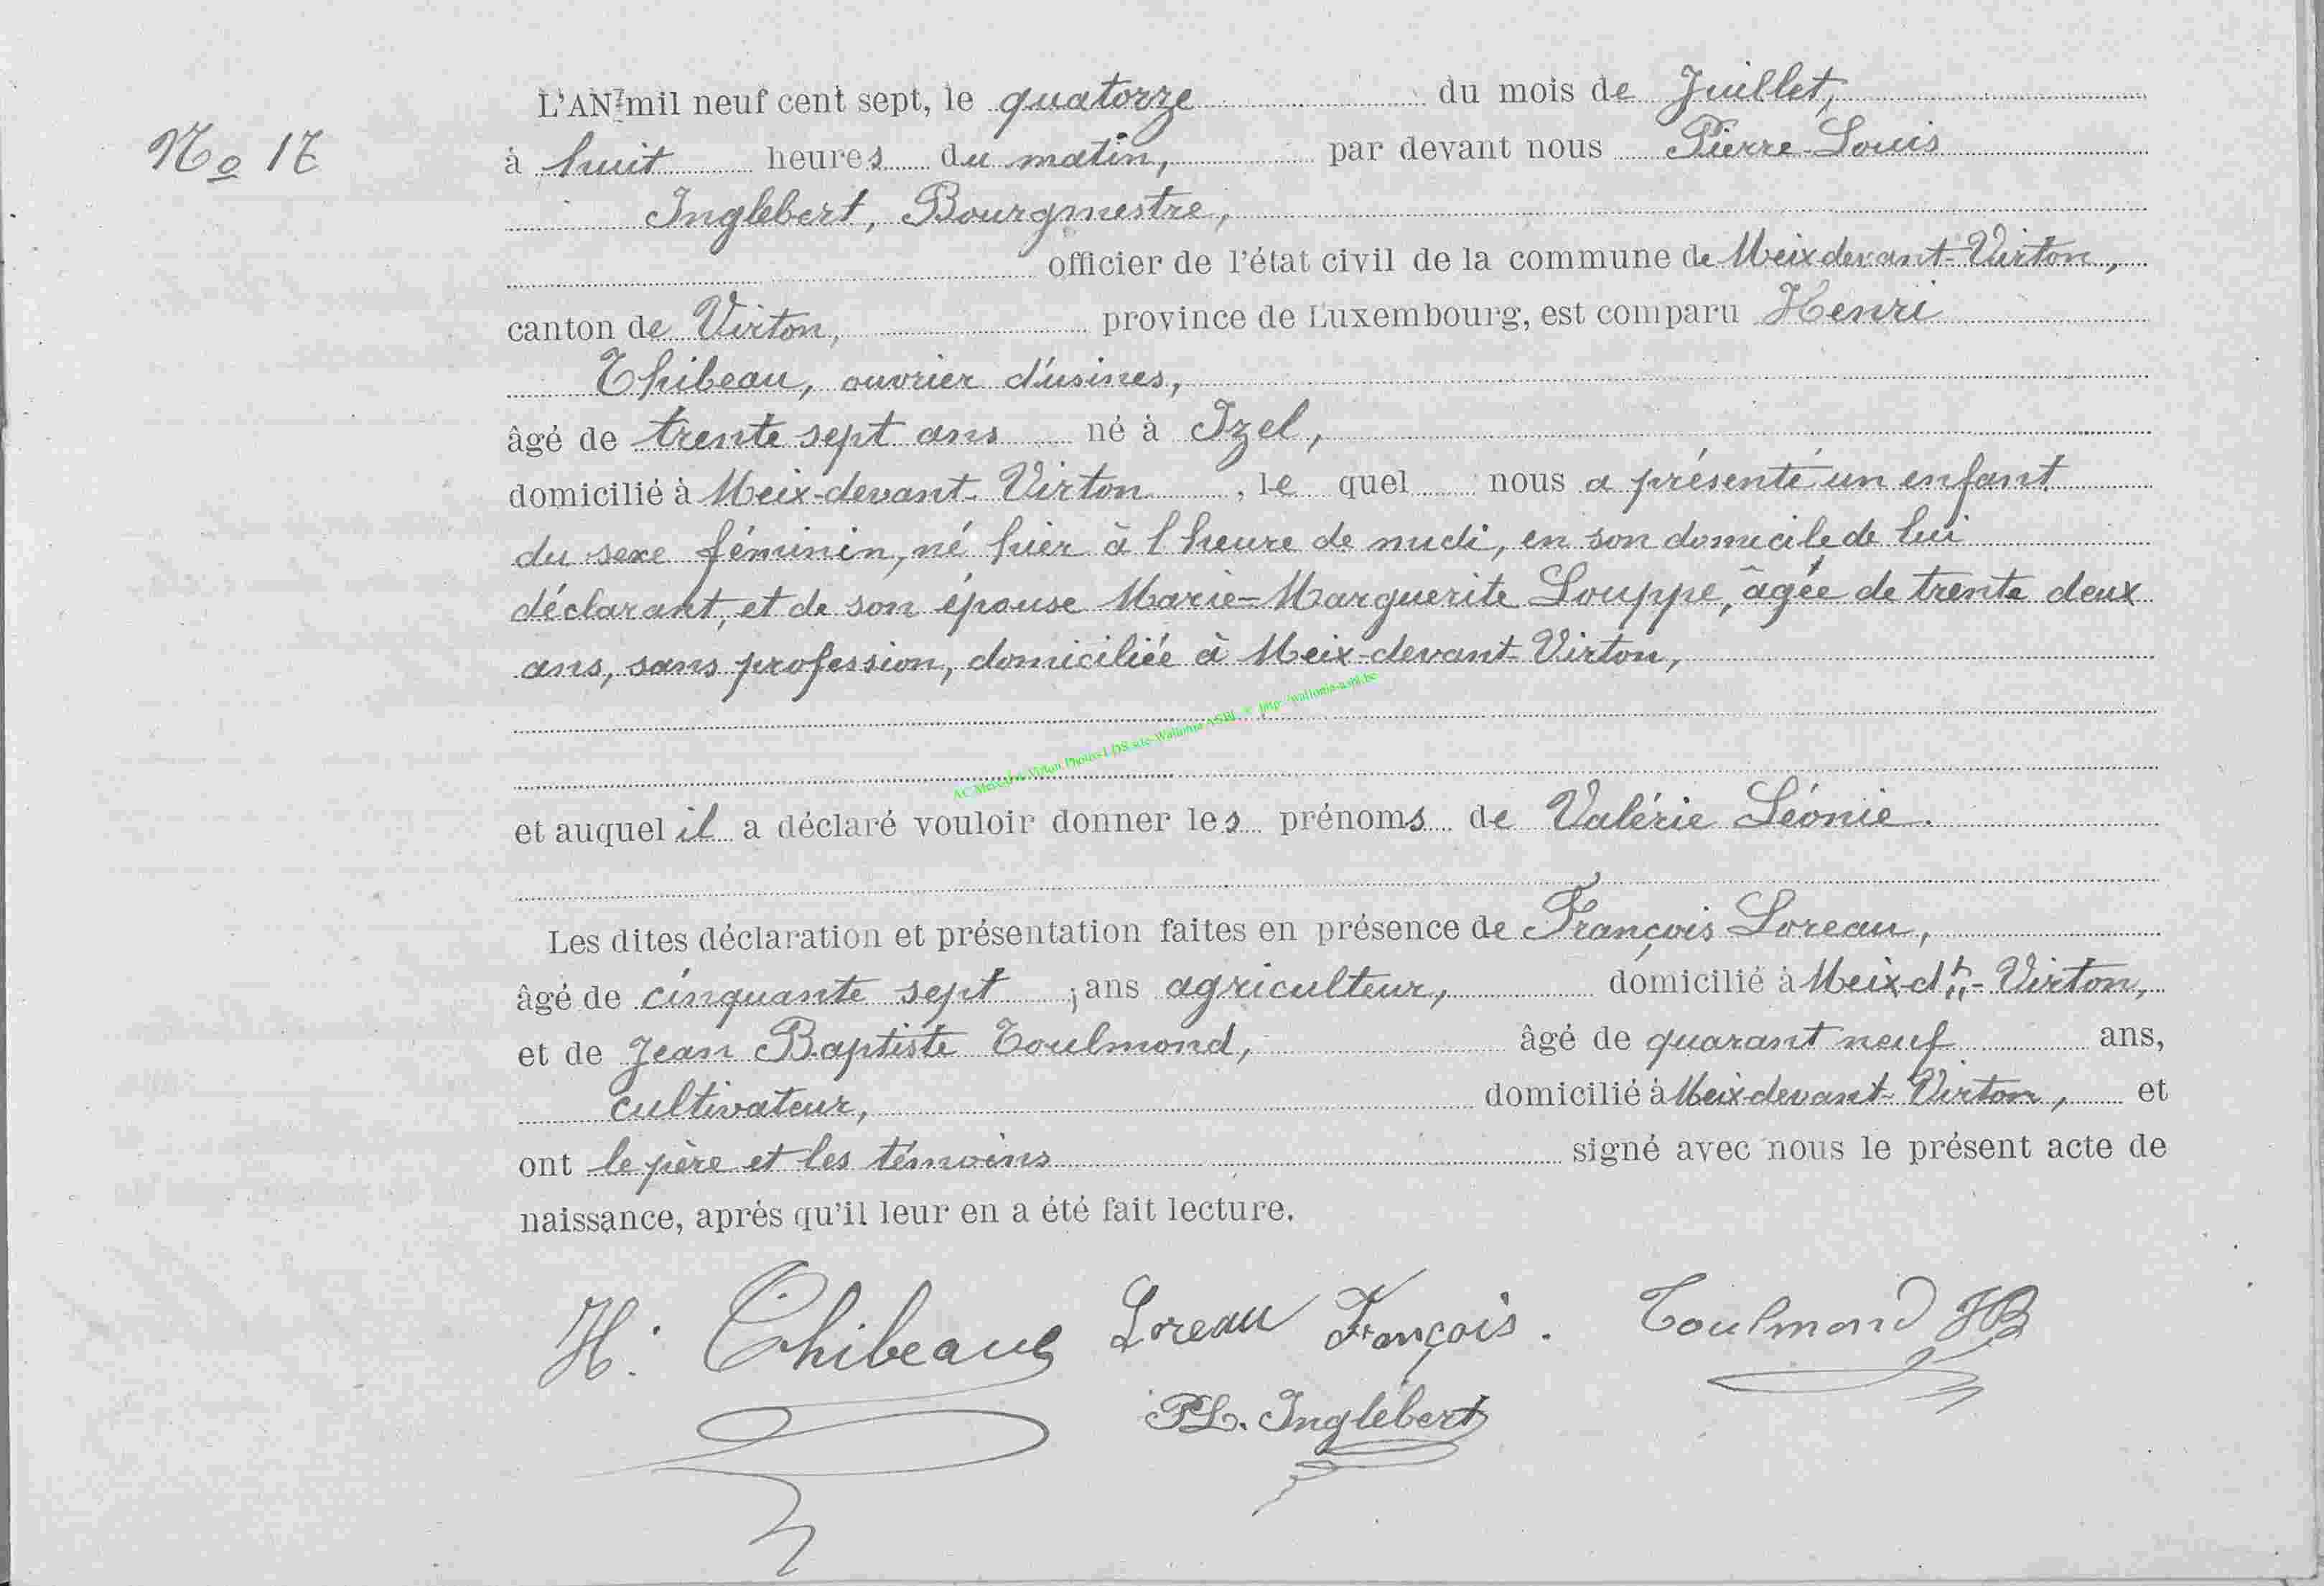 L'AN mil neuf cent sept, le quatorze du mois de Juillet,
No 17
à huit heures du matin, par devant nous Pierre-Louis
Inglebert, Bourgmestre,
officier de l'état civil de la commune de Meix devant-Virton,
canton de Virton, province de Luxembourg, est comparu Henri
Thibeau, ouvrier d'usines,
âgé de trente sept ans né à Izel,
domicilié à Meix-devant-Virton, le quel nous a présenté un enfant
du sexe féminin, né hier à l'heure de midi, en son domicile de lui
déclarant, et de son épouse Marie-Marguerite Louppe, âgée de trente deux
ans, sans profession, domiciliée à Meix-devant-Virton,
et auquel il a déclaré vouloir donner les prénoms de Valérie Léonie.
Les dites déclaration et présentation faites en présence de François Loreau,
âgé de cinquante sept ans agriculteur, domicilié à Meix-dt-Virton,
et de Jean Baptiste Toulmond, âgé de quarant neuf ans,
cultivateur, domicilié à Meix devant-Virton, et
ont le père et les témoins signé avec nous le présent acte de
naissance, après qu'il leur en a été fait lecture.
H. Thibeau Loreau François. Toulmond JB
PL. Inglebert